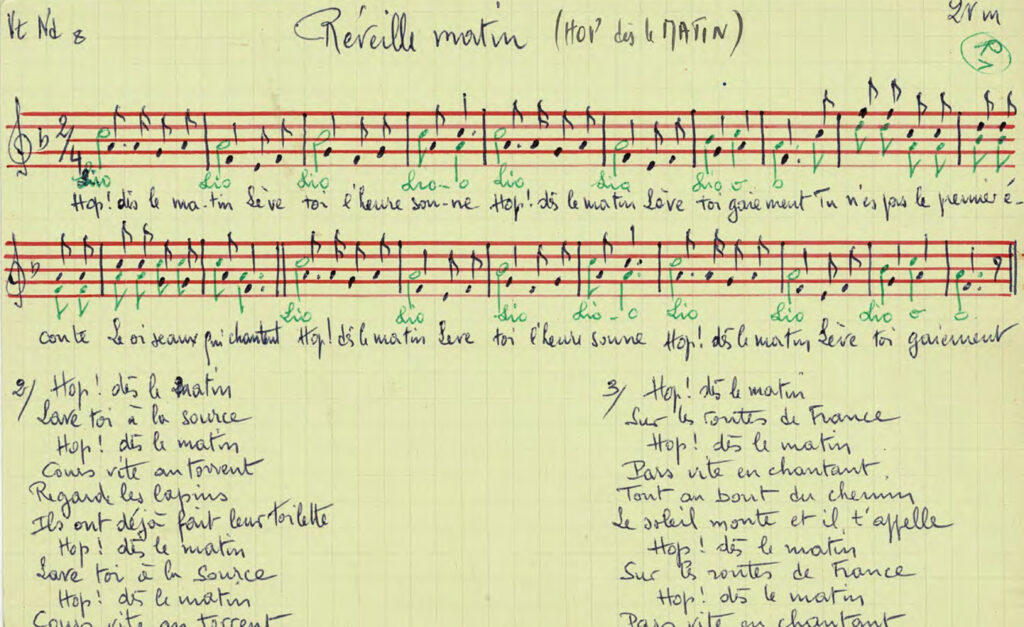 Vt Nd 8
Réveille matin (HOP' dès le MATIN)
2V m
R1
2/4
Lio Lio Lio Lio-o Lio Lio Lio o o
Hop! dès le ma-tin Lève toi l'heure son-ne Hop! dès le matin Lève toi gaiement Tu n'es pas le premier é-
Lio Lio Lio Lio-o Lio Lio Lio o o
coute Le oiseaux qui chantent Hop! dès le matin Leve toi l'heure sonne Hop! dès le matin, Lève toi gaiement
2/ Hop! dès le matin
Lave toi à la source
Hop! dès le matin
Cours vite au torrent
Regarde les lapins
Ils ont déjà fait leur toilette
Hop! dès le matin
Lave toi à la source
Hop! dès le matin
Cours vite au torrent
3/ Hop! dès le matin
Sur les routes de France
Hop! dès le matin
Pars vite en chantant.
Tout au bout du chemin
Le soleil monte et il t'appelle
Hop! dès le matin
Sur les routes de France
Hop! dès le matin
Pars vite en chantant